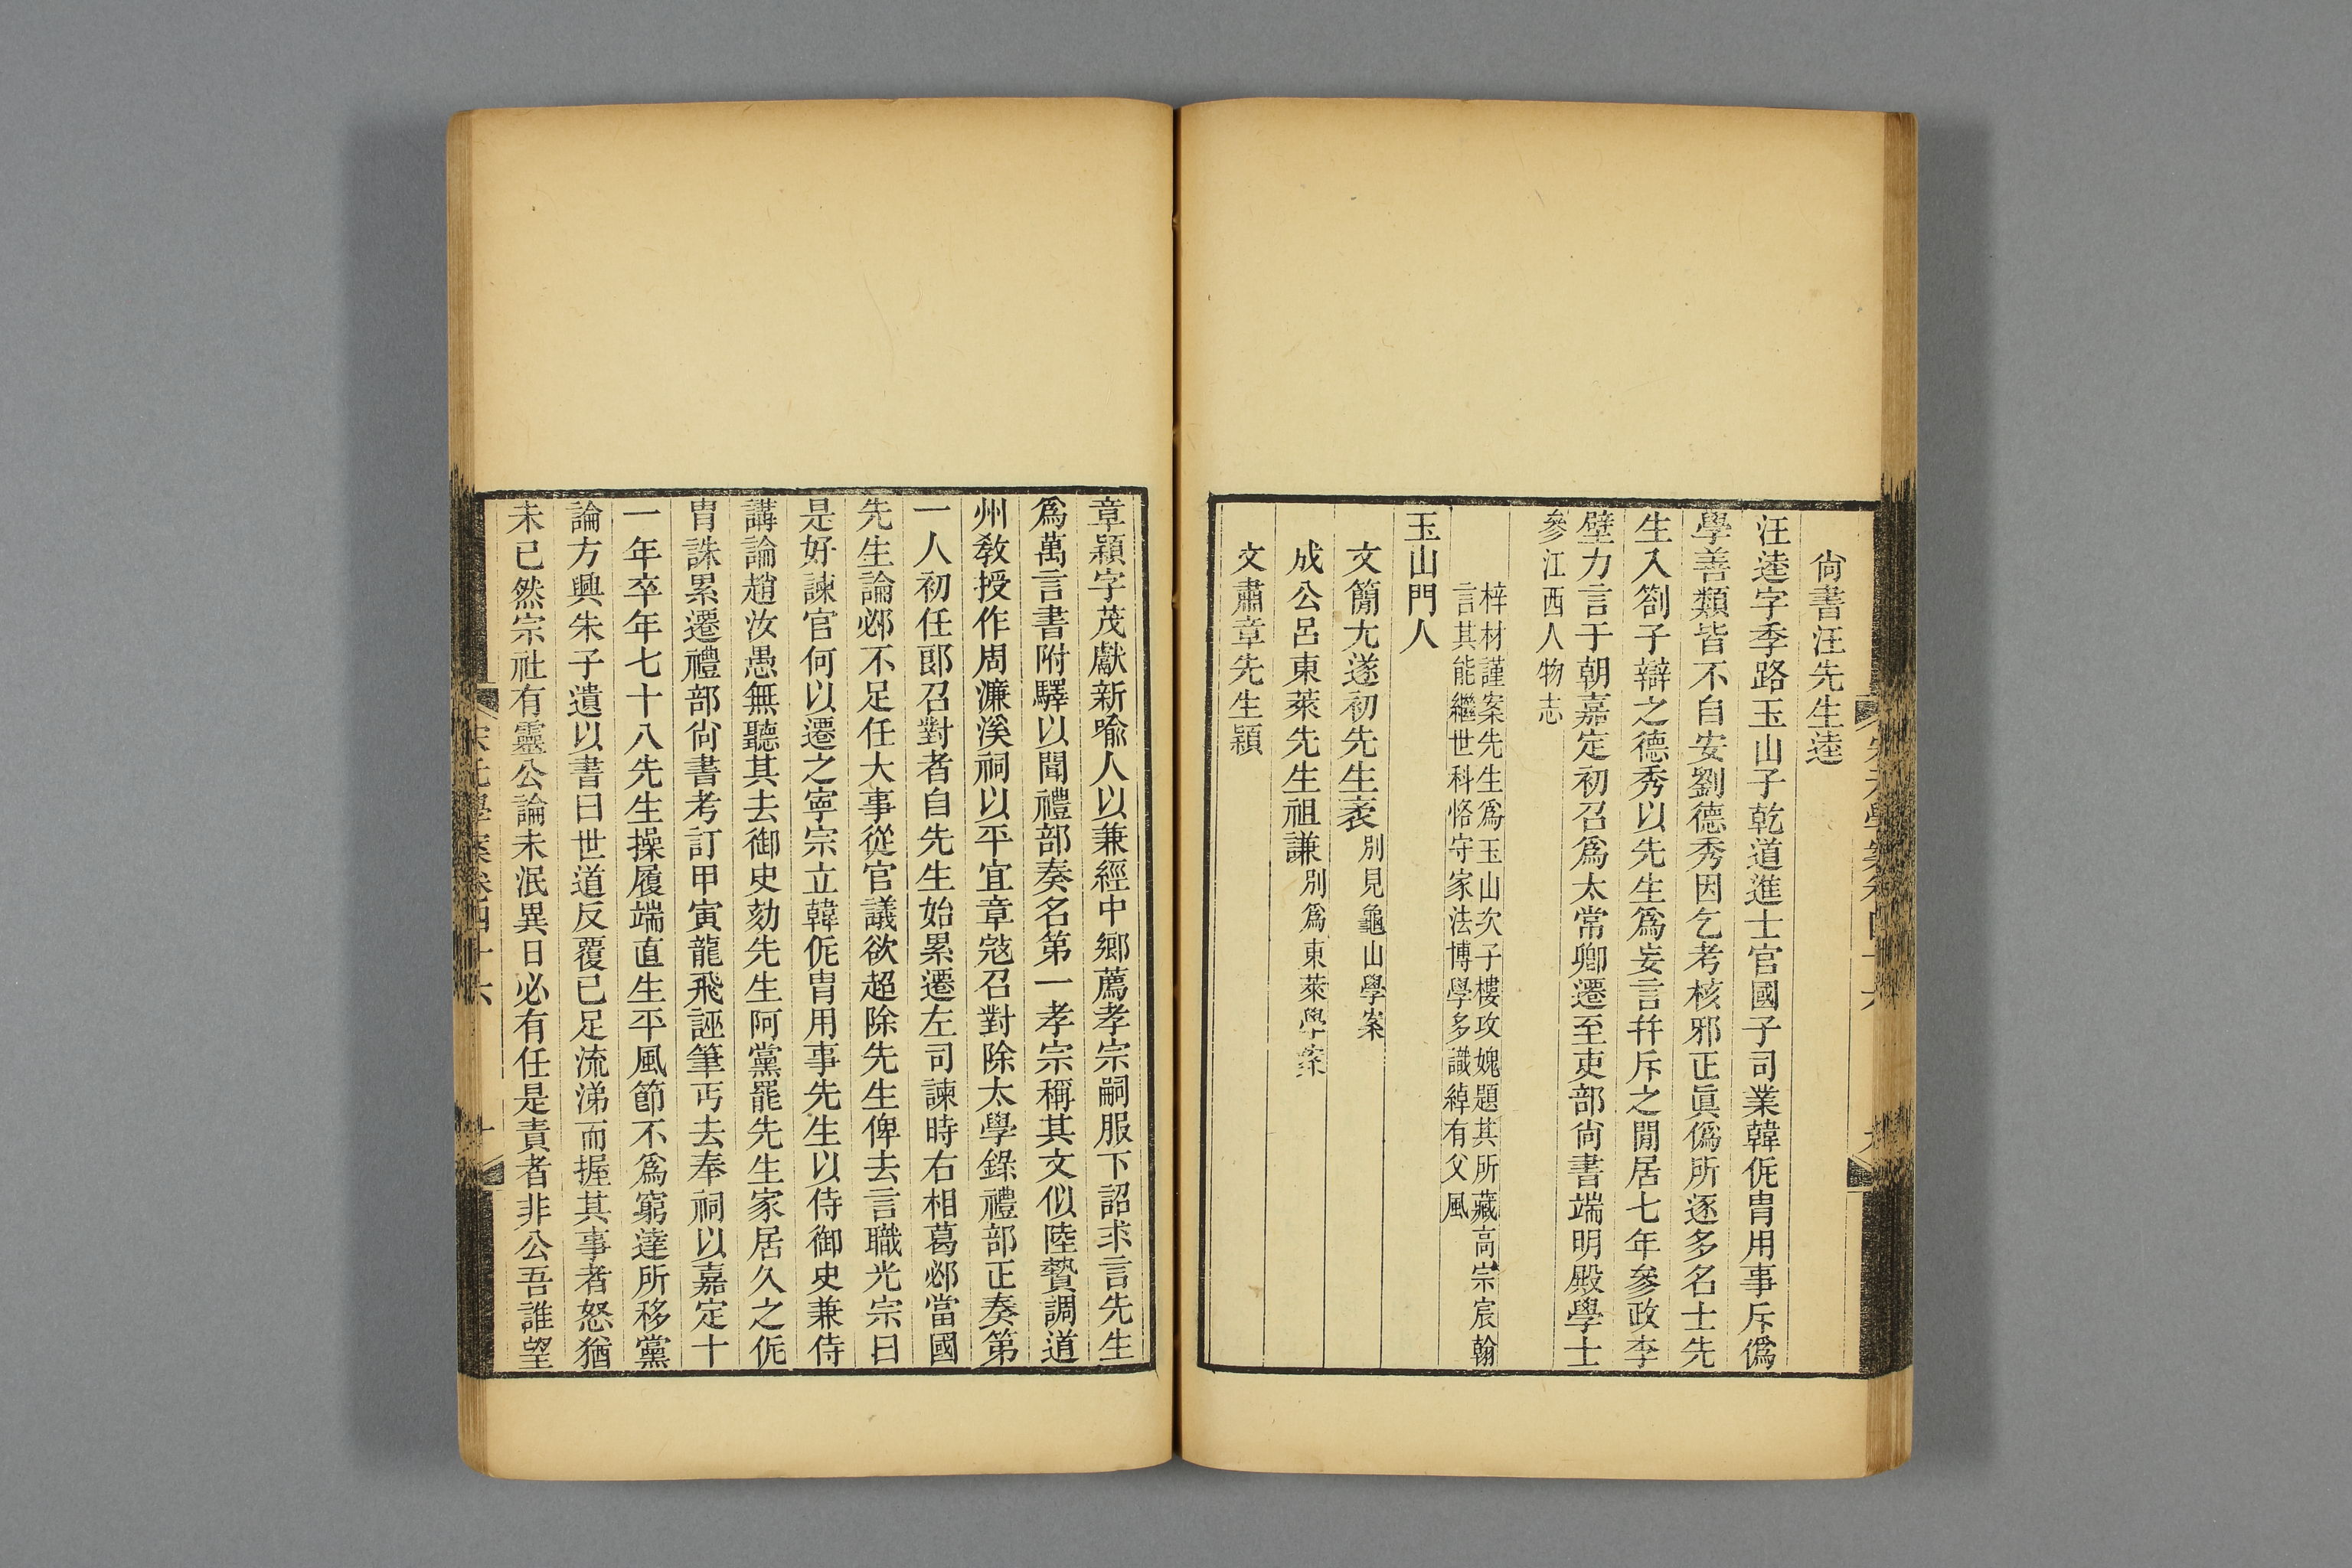 尙書汪先生逵
汪逵字季路玉山子乾道進士官國子司業韓侂胄用事斥僞
學善類皆不自安劉德秀因乞考核邪正眞僞所逐多名士先
生入劄子辯之德秀以先生爲妄言幷斥之閒居七年參政李
壁力言于朝嘉定初召爲太常卿遷至吏部尙書端明殿學士
參江西人物志
梓材謹案先生爲玉山次子樓攻媿題其所藏高宗宸翰
言其能繼世科恪守家法博學多識綽有父風
玉山門人
文簡尤遂初先生袤別見龜山學案
成公呂東萊先生祖謙別爲東萊學案
文肅章先生穎
章穎字茂獻新喻人以兼經中鄉薦孝宗嗣服下詔求言先生
爲萬言書附驛以聞禮部奏名第一孝宗稱其文似陸贄調道
州敎授作周濂溪祠以平宜章寇召對除太學錄禮部正奏第
一人初任郞召對者自先生始累遷左司諫時右相葛邲當國
先生論邲不足任大事從官議欲超除先生俾去言職光宗曰
是好諫官何以遷之寧宗立韓侂胄用事先生以侍御史兼侍
講論趙汝愚無聽其去御史劾先生阿黨罷先生家居久之侂
胄誅累遷禮部尙書考訂甲寅龍飛誣筆丐去奉祠以嘉定十
一年卒年七十八先生操履端直生平風節不爲窮達所移黨
論方興朱子遺以書曰世道反覆已足流涕而握其事者怒猶
未已然宗社有靈公論未泯異日必有任是責者非公吾誰望
宋元學案卷四十六
十